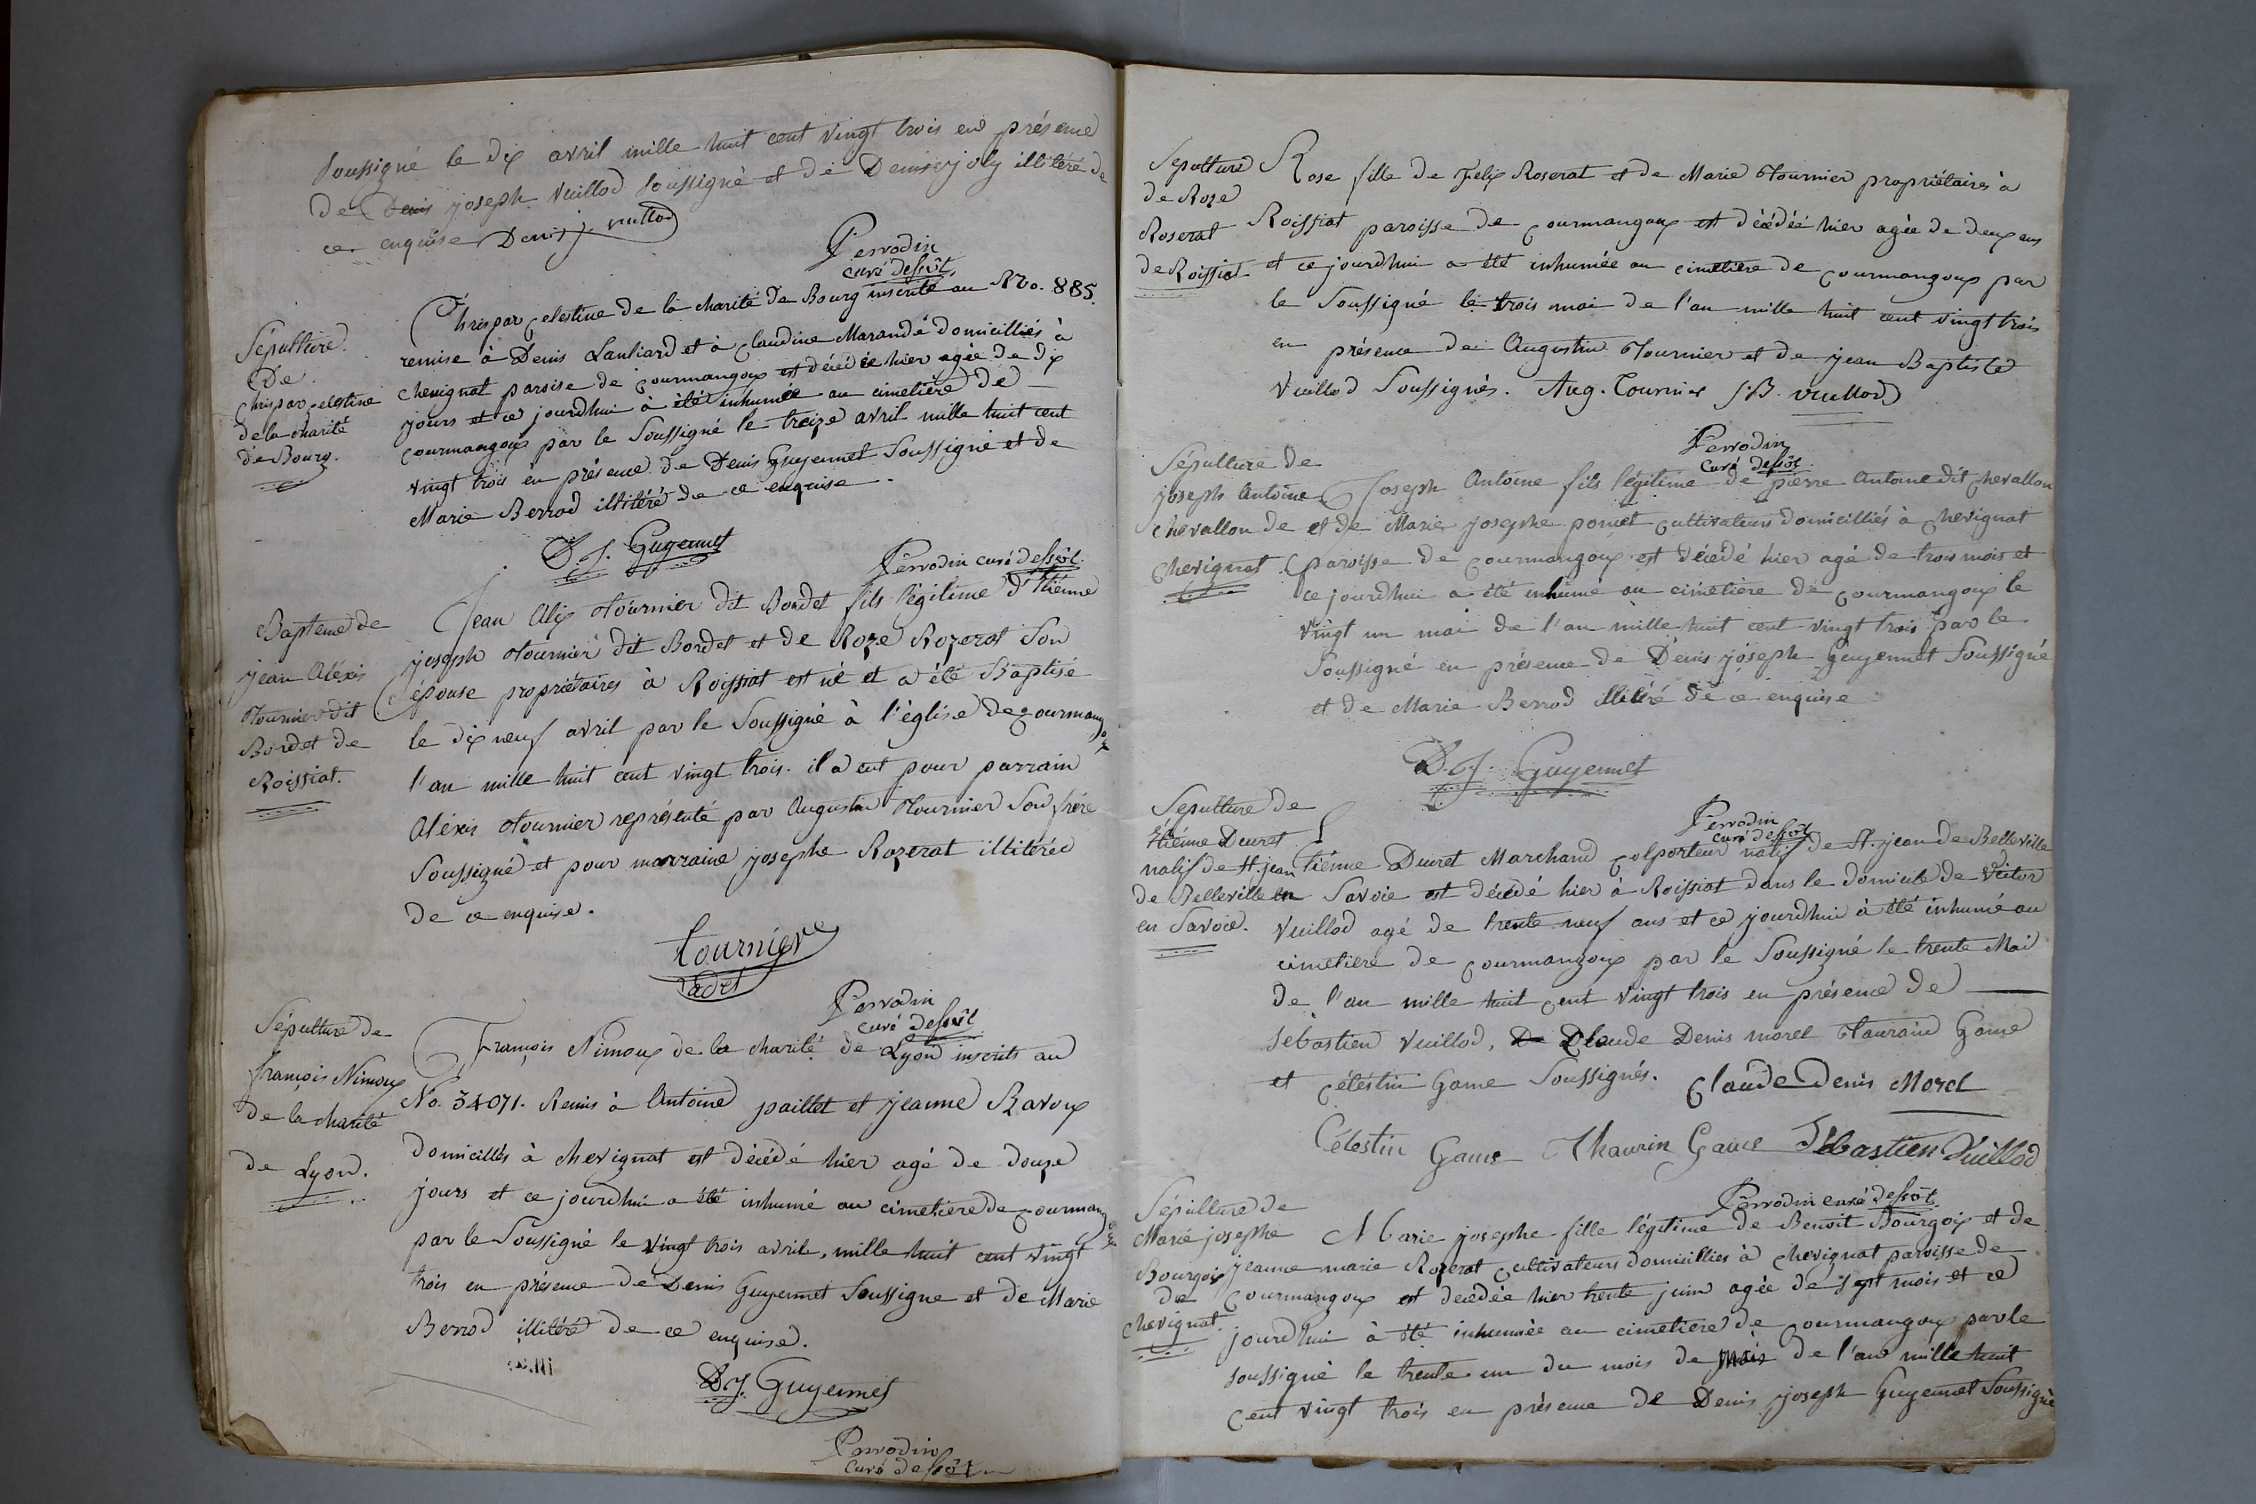 soussigné le dix avril mille huit cent vingt trois en présence
de Denis joseph Vuillod soussigné et de Denis joly illitéré de
ce enquise Denis j. vuillod
Perrodin
curé dessôt.
Sépulture
De
Chrispar celestine
de la charité
de Bourg.
Chrispar celestine de la charité de Bourg inscrite au No. 885.
remise à Denis Lauliard et à claudine Marandé domicilliés à
chevignat paroise de courmangoux est décédée hier agée de dix
jours et ce jourdhui à été inhumée au cimetière de
courmangoux par le soussigné le treize avril mille huit cent
vingt trois en présence de Denis Guyennet soussigné et de
Marie Berrod illitéré de ce enquise.
D. J. Guyennet
Perrodin curé dessôt.
Bapteme de
jean Aléxis
Tournier dit
Bordet de
Roissiat.
Jean Alix Tournier dit Bordet fils légitime d'Etienne
joseph Tournier dit Bordet et de Roze Rozerat son
épouse propriétaires à Roissiat est né et a été Baptisé
le dix neuf avril par le soussigné à l'église de courmangoux
l'an mille huit cent vingt trois. il a eut pour parrain
Aléxis Tournier représenté par Augustin Tournier son frère
soussigné et pour marraine josephe Rozerat illitérée
de ce enquise.
tournier
cadet
Perrodin
curé dessôt
Sépulture de
françois Nimoux
de la charité
de Lyon.
François Nimoux de la charité de Lyon inscrits au
No. 34071. Remis à Antoine paillet et jeanne Ravoux
domicillés à chevignat est décédé hier agé de douze
jours et ce jourdhui a été inhumé au cimetiere de courmangoux
par le soussigné le vingt trois avrile, mille huit cent vingt
trois en présence de Denis Guyennet soussigne et de Marie
Berrod illitéré de ce enquise.
D. J. Guyennet
Perrodin
curé dessôt
Sépulture
de Roze
Roserat
de Roissiat
Rose fille de Felix Roserat et de Marie Tournier propriétaires à
Roissiat paroisse de courmangoux est décédée hier agée de deux ans
et ce jourdhui a été inhumée au cimetière de courmangoux par
le soussigné le trois mai de l'an mille huit cent vingt trois
en présence de Augustin Tournier et de jean Baptiste
Vuillod soussignés. Aug. Tournier J.B. vuillod
Perrodin
curé dessôt
Sépulture de
joseph Antoine
chevallon de
chevignat
Joseph Antoine fils légitime de pierre Antoine dit chevallon
et de Marie josephe pomet cultivateurs domicilliés à chevignat
paroisse de courmangoux est décédé hier agé de trois mois et
ce jourdhui a été inhumé au cimétière de courmangoux le
vingt un mai de l'an mille huit cent vingt trois par le
soussigné en présence de Denis joseph Guyennet soussigné
et de Marie Berrod illitéré de ce enquise
D. J. Guyennet
Perrodin
curé dessôt
Sepulture de
Etiénne Ducret
natif de St. jean
de Belleville
en Savoie.
Etiénne Ducret Marchand colporteur natif de St. jean de Belleville
en Savoie est décédé hier à Roissiat dans le domicile de Victor
Vuillod agé de trente neuf ans et ce jourdhui à été inhumé au
cimetiere de courmangoux par le soussigné le trente Mai
de l'an mille huit cent vingt trois en présence de
sébastien Vuillod, De Claude Denis morel Taurain Game
et célestin Game soussignés. Claude Denis Morel
Célestin Game Thaurin Game Sébastien Vuillod
Perrodin curé dessôt.
Sépulture de
Marie josephe
Bourgoix
de
chevignat.
Marie josephe fille légitime de Benoit Bourgoix et de
jeanne marie Rozerat cultivateurs domicilliés à chevignat paroisse de
courmangoux est decédée hier trente juin agée de sept mois et ce
jourdhui à été inhumée au cimetiere de courmangoux par le
soussigné le trente un du mois de mois de l'an mille huit
cent vingt trois en présence de Denis joseph Guyennet soussigné